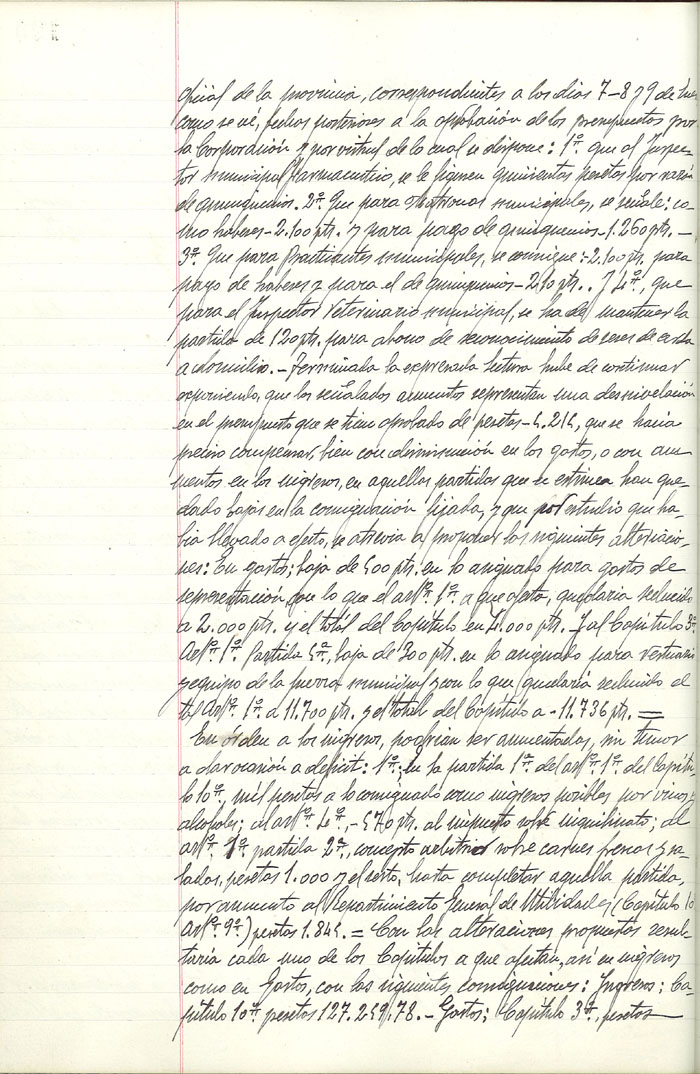 oficial de la provincia, correspondientes a los dias 7-8 y 9 de
como se vé, fechas posteriores a la aprobación de los presupuestos por
la Corporación y por virtud de lo cual se dispone: 1º. que al Inspec-
tor municipal farmaceutico, se le fijen quinientas pesetas por razón
de quinquenios. 2º. Que para Matronas municipales, se señale: co-
mo haberes-2.100 pts. y para pago de quinquenios-1.260 pts. —
3º. Que para Practicantes municipales, se consigne:-2.100 pts. para
pago de haberes y para el de quinquenios-210 pts.. Y 4º, que
para el Inspector Veterinario municipal, se ha de mantener la
partida de 120 pts. para abono de reconocimiento de reses de cerda
a domicilio.- Terminada la expresada lectura hube de continuar
exponiendo, que los señalados aumentos representan una desnivelación
en el presupuesto que se tiene aprobado de pesetas-5.215, que se hacia
preciso compensar, bien con disminución en los gastos, o con au-
mentos en los ingresos, en aquellas partidas que se estimen han que-
dado bajas en la consignación fijada, y que por estudio que ha-
bia llevado a efecto, se atrevia a proponer las siguientes alteracio-
nes: En gastos; baja de 500 pts. en lo asignado para gastos de
representación, con lo que el artº. 1º. a que afecta, quedaria reducido
a 2.000 pts. y el total del Capítulo en 4.000 pts. Y al Capítulo 3º
Artº. 1º. Partida 5ª, baja de 300 pts. en lo asignado para vestuario
y equipo de la guardia municipal y con lo que quedaría reducido el
Artº. 1º. a 11.700 pts. y el total del Capítulo a-11.736 pts. =
En orden a los ingresos, podrian ser aumentados, sin temor
a dar ocasión a deficit: 1º. en la partida 1ª del artº. 1º. del Capítu-
lo 10º, mil pesetas a lo consignado como ingresos posibles por vinos y
alcoholes; al artº. 4º,-570 pts. al impuesto sobre inquilinato; al
artº. partida 2ª, concepto arbitrio sobre carnes frescas y sa-
ladas, pesetas 1.000 y el resto, hasta completar aquella partida,
por aumento al Repartimiento General de Utilidades (Capítulo 10
Artº. 9º.) pesetas 1.845. = Con las alteraciones propuestas resul-
taría cada uno de los Capítulos a que afectan, asi en ingresos
como en Gastos, con las siguientes consignaciones: Ingresos; Ca-
pítulo 10º pesetas 127.259.78.- Gastos; Capítulo 3º, pesetas